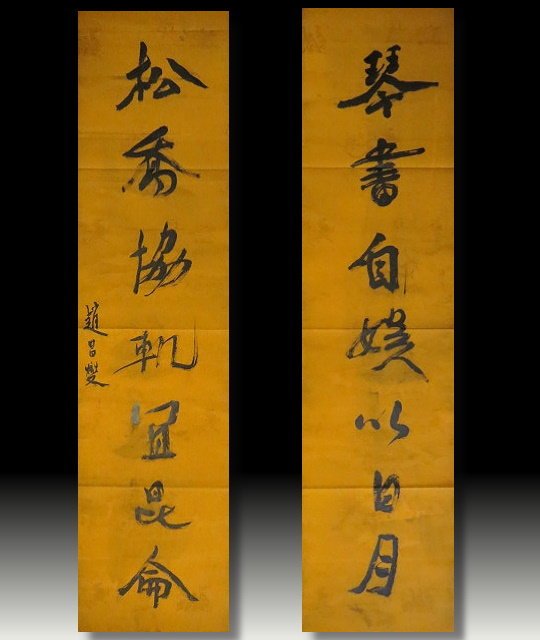 琴書自娛以日月
松喬協軌宜昆侖
趙昌燮